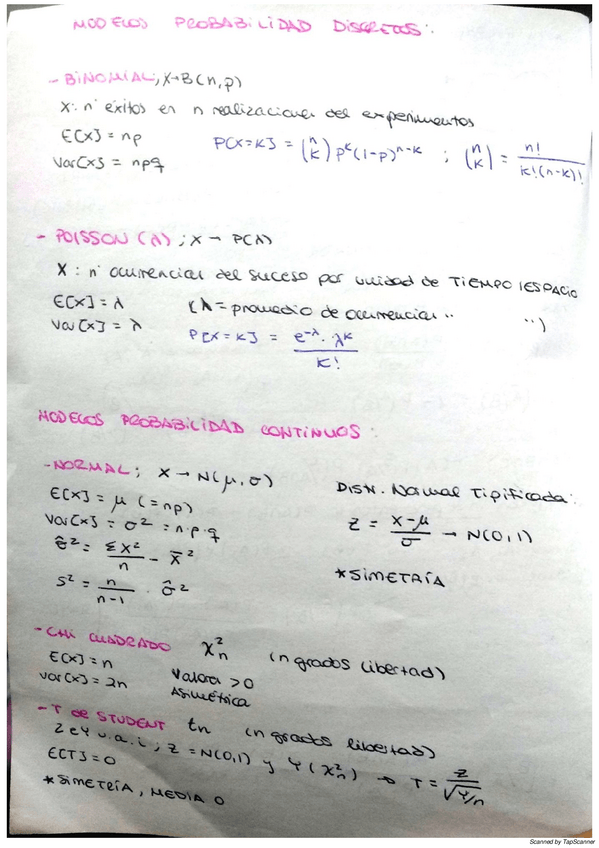 MODELOS PROBABILIDAD DISCRETOS:
- BINOMIAL; X→B(n,p)
X: nº éxitos en n realizaciones del experimentos
E[X] = np
P[X=K] = (n K) p^k (1-p)^n-k ; (n K) = n! / K!(n-k)!
Var[X] = npq
- POISSON (λ) ; X → P(λ)
X : nº ocurrencias del suceso por unidad de TIEMPO/ESPACIO
E[X] = λ (λ = promedio de ocurrencias " ")
Var[X] = λ P[X=K] = e^-λ · λ^k / K!
MODELOS PROBABILIDAD CONTINUOS:
- NORMAL; X → N(μ, σ) Distr. Normal Tipificada:
E[X] = μ (=np)
Var[X] = σ² = n·p·q Z = X-μ / σ → N(0,1)
σ̂² = Σx² / n - x̄²
S² = n / n-1 · σ̂² *SIMETRÍA
- CHI CUADRADO χ²n (n grados libertad)
E[X] = n Valores >0
Var[X] = 2n Asimétrica
- T de STUDENT tn (n grados libertad)
Z e Y v.a.i ; Z = N(0,1) y Y (χ²n) → T = Z / √Y/n
E[T] = 0
*SIMETRÍA, MEDIA 0
Scanned by TapScanner